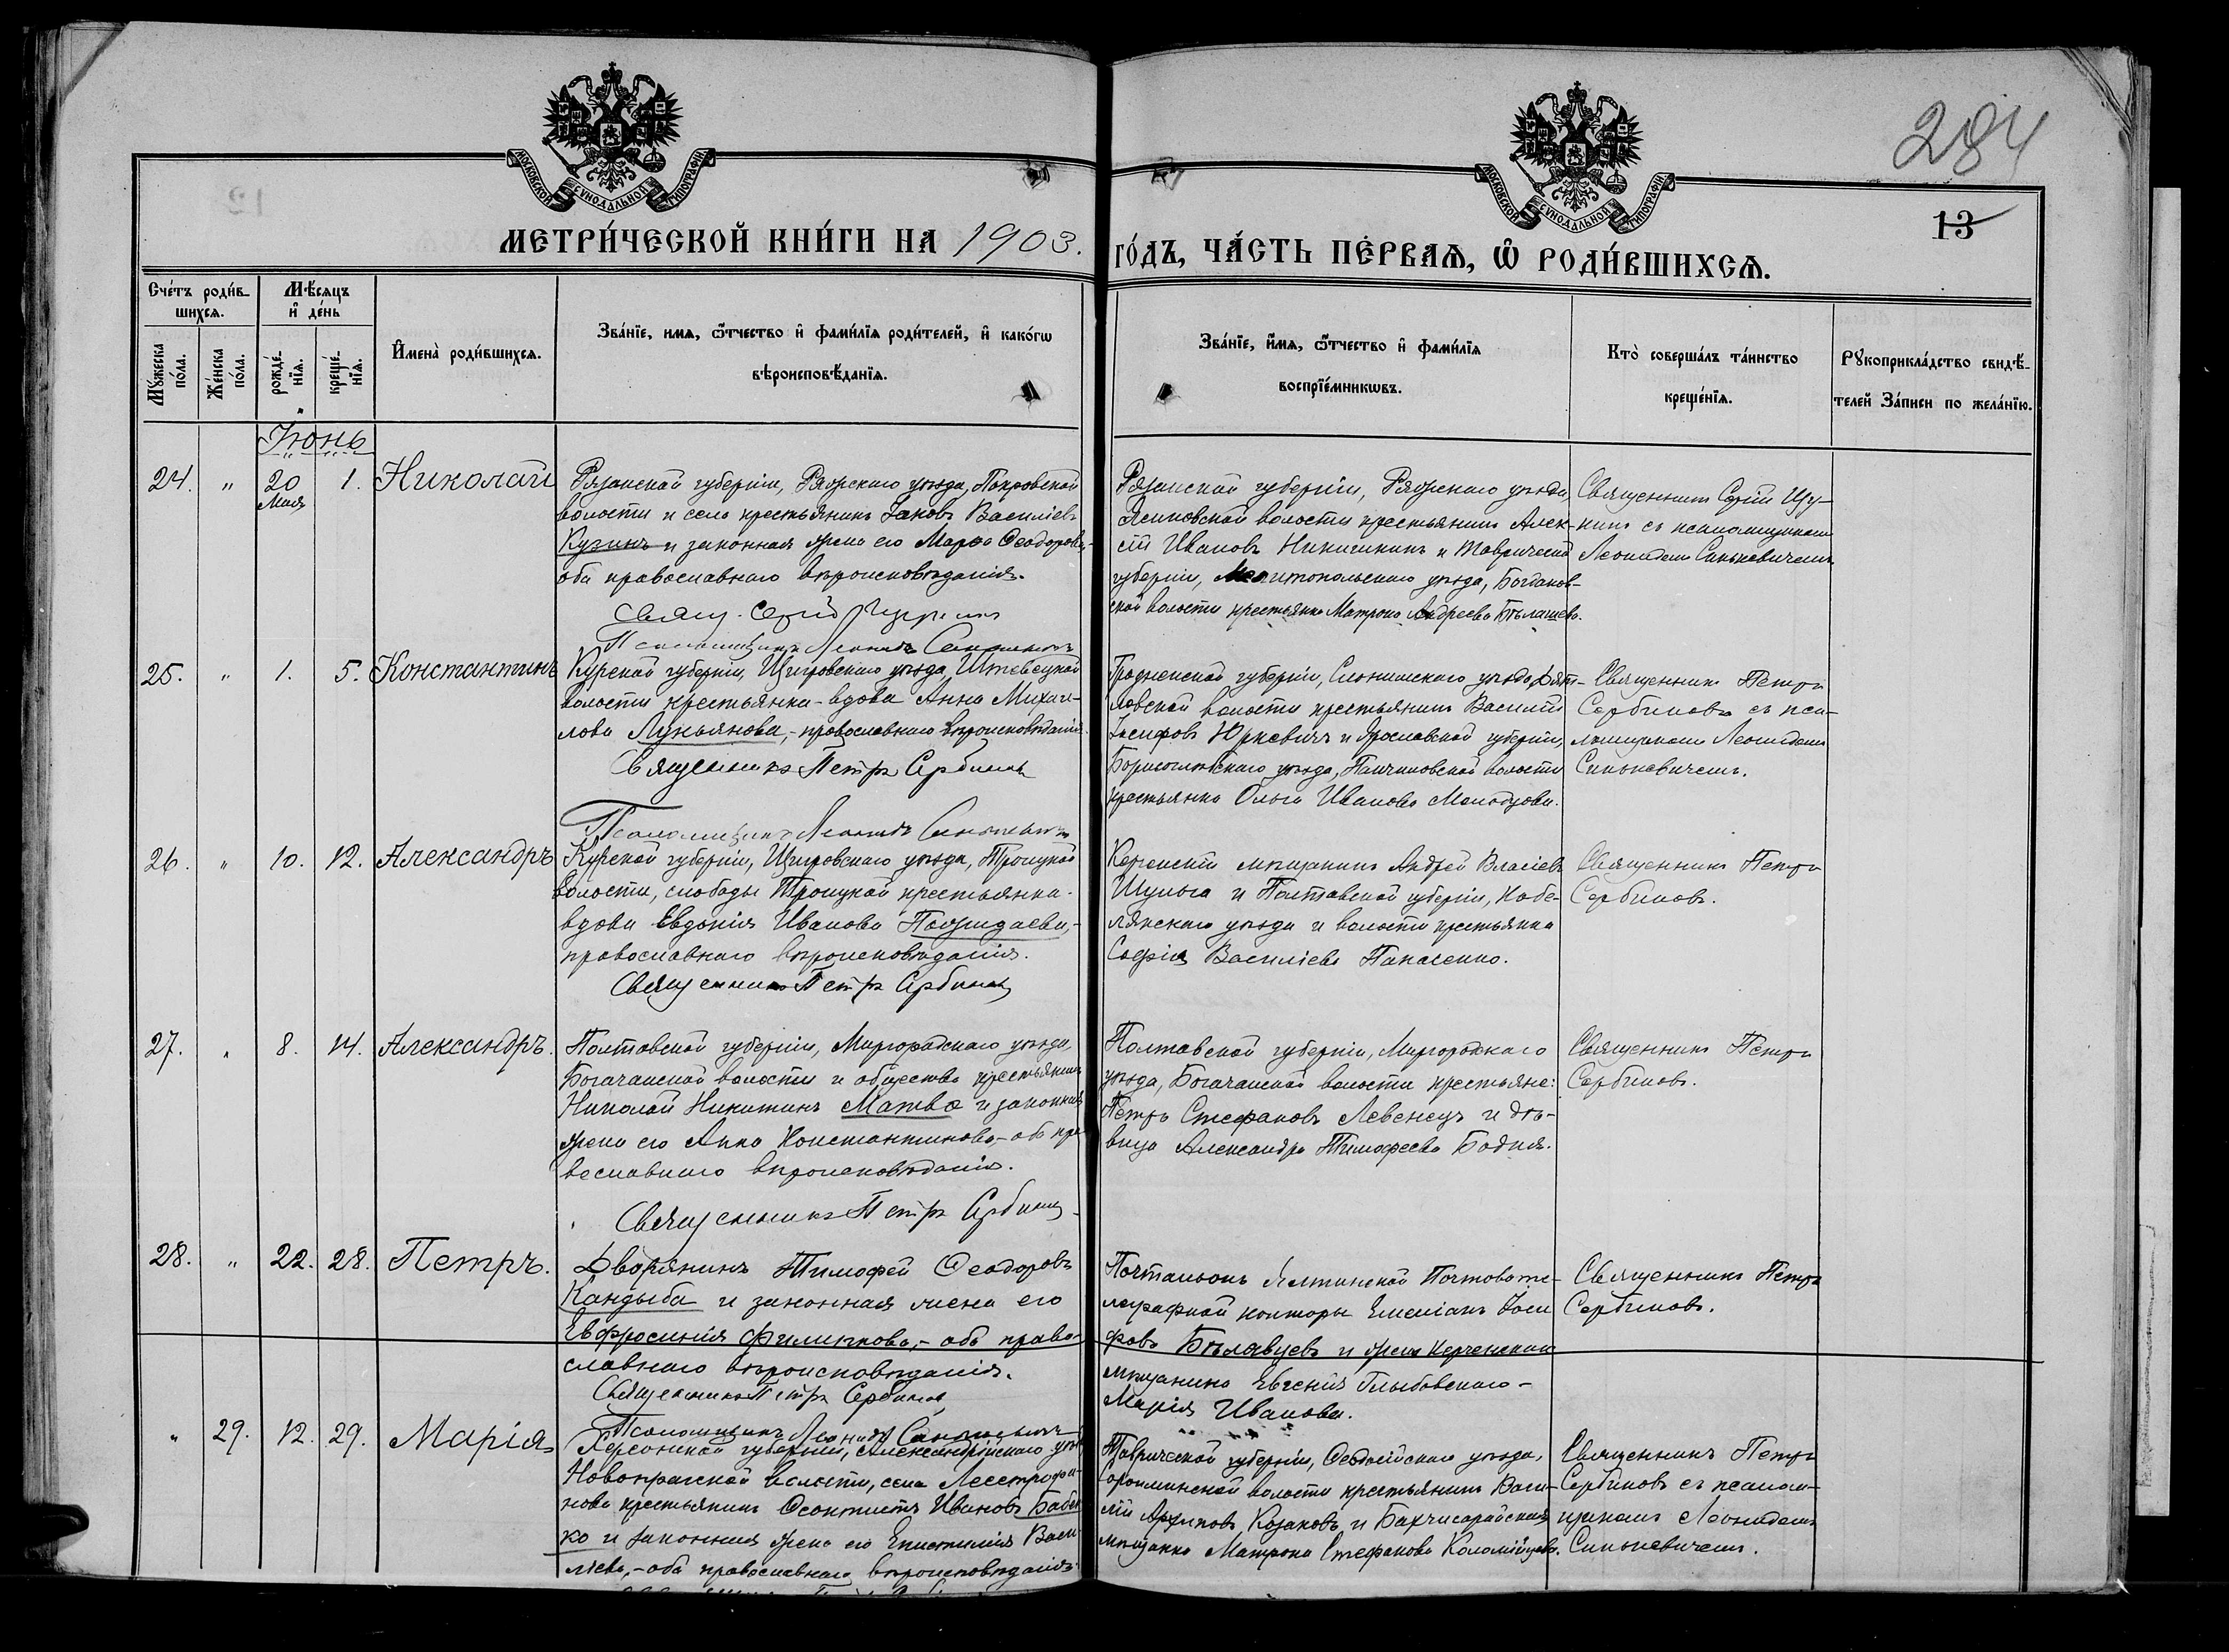 284
13
МОСКОВСКОЙ СѴНОДАЛЬНОЙ ТИПОГРАФІИ
МОСКОВСКОЙ СѴНОДАЛЬНОЙ ТИПОГРАФІИ
МЕТРИ́ЧЕСКОЙ КНИ́ГИ НА 1903.
ГО́ДЪ, ЧА́СТЬ ПЕ́РВАѦ, Ѡ҆ РОДИ́ВШИХСѦ.
Сче́тъ роди́в-
шихсѧ.
Мꙋ́жеска по́ла.
Же́нска по́ла.
Мѣ́сѧцъ
и҆ де́нь
рожде́-нїѧ.
креще́-нїѧ.
И҆мена̀ роди́вшихсѧ.
Зва́нїе, имѧ, ѻ҆́тчество и҆ фами́лїѧ роди́телей, и҆ како́гѡ
вѣроисповѣ́данїѧ.
Зва́нїе, и҆́мѧ, ѻ҆́тчество и҆ фами́лїѧ
воспрїе́мникѡвъ.
Кто̀ соверша́лъ та́инство
креще́нїѧ.
Рꙋкоприкла́дство свидѣ́-
телей За́писи по жела́нїю.
Іюнь
24. „ 20 Мая 1. Николай
Рязанской губерніи, Ряжскаго уѣзда, Покровской
волости и села крестьянинъ Іаковъ Василіевъ
Кузинъ и законная жена его Марѳа Ѳеодорова,-
оба православнаго вѣроисповѣданія.
Свящ. Сергій Щукинъ
Псаломщикъ Леонидъ Синькевичъ
Рязанской губерніи, Ряжскаго уѣзда
волости крестьянинъ Алек-
сій Ивановъ Никишкинъ и Таврической
губерніи, Мелитопольскаго уѣзда, Богданов-
ской волости крестьянка Матрона Андреева Бѣлашева.
Священникъ Сергій Щу-
кинъ съ псаломщикомъ
Леонидомъ Синькевичемъ
25. „ 1. 5. Константинъ
Курской губерніи, Щигровскаго уѣзда,
волости крестьянка-вдова Анна Михаи-
лова Лукьянова,- православнаго вѣроисповѣданія.
Священникъ Петръ Сербиновъ
Псаломщикъ Леонидъ Синькевичъ
Гродненской губерніи, Слонимскаго уѣзда,
ловской волости крестьянинъ Василій
Іосифовъ Юркевичъ и Ярославской губерніи,
Борисоглѣбскаго уѣзда, волости
крестьянка Ольга Иванова
Священникъ Петръ
Сербиновъ съ пса-
ломщикомъ Леонидомъ
Синькевичемъ.
26. „ 10. 12. Александръ
Курской губерніи, Щигровскаго уѣзда, Троицкой
волости, слободы Троицкой крестьянка-
вдова Евдокія Иванова Пожидаева,-
православнаго вѣроисповѣданія.
Священникъ Петръ Сербиновъ
мѣщанинъ Андрей Власіевъ
Шульга и Полтавской губерніи, Кобе-
лякскаго уѣзда и волости крестьянка
Софія Василіева Панасенко.
Священникъ Петръ
Сербиновъ.
27. „ 8. 14. Александръ.
Полтавской губерніи, Миргородскаго уѣзда,
Богачанской волости и общества крестьянинъ
Николай Никитинъ Матва и законная
жена его Анна Константинова,- оба пра-
вославнаго вѣроисповѣданія.
Священникъ Петръ Сербиновъ
Полтавской губерніи, Миргородскаго
уѣзда, Богачанской волости крестьяне:
Петръ Стефановъ Левенецъ и дѣ-
вица Александра Тимофеева Бодня.
Священникъ Петръ
Сербиновъ.
28. „ 22. 28. Петръ.
Дворянинъ Тимофей Ѳеодоровъ
Кандыба и законная жена его
Евфросинія Филиппова,- оба право-
славнаго вѣроисповѣданія.
Священникъ Петръ Сербиновъ
Псаломщикъ Леонидъ Синькевичъ
Почтальонъ Ялтинской Почтовоте-
леграфной конторы Емеліанъ Іоси
фовъ Бѣлявцевъ и жена Керченскаго
мѣщанина Евгенія Глыбовскаго-
Марія Иванова.
Священникъ Петръ
Сербиновъ.
„ 29. 12. 29. Марія
Херсонской губерніи, Александрійскаго уѣзда
Новопражской волости, села
нова крестьянинъ Ѳеоктистъ Ивановъ Бабен
ко и законная жена его Епистимія Васи-
ліева,- оба православнаго вѣроисповѣданія.
Таврической губерніи, Ѳеодосійскаго уѣзда,
волости крестьянинъ Васи-
лій Архиповъ Козаковъ и Бахчисарайская
мѣщанка Матрона Стефанова Коломійцева.
Священникъ Петръ
Сербиновъ съ псалом-
щикомъ Леонидомъ
Синькевичемъ.